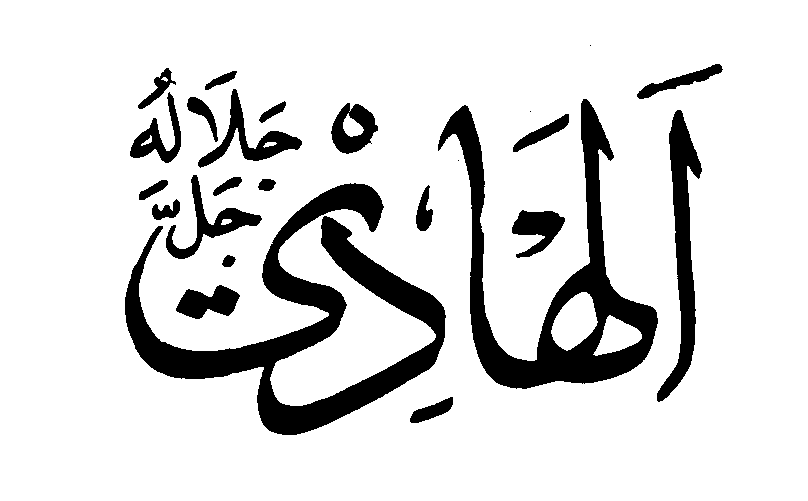 اَلْهَادِيْ
جَلَّ
جَلَالُهُ